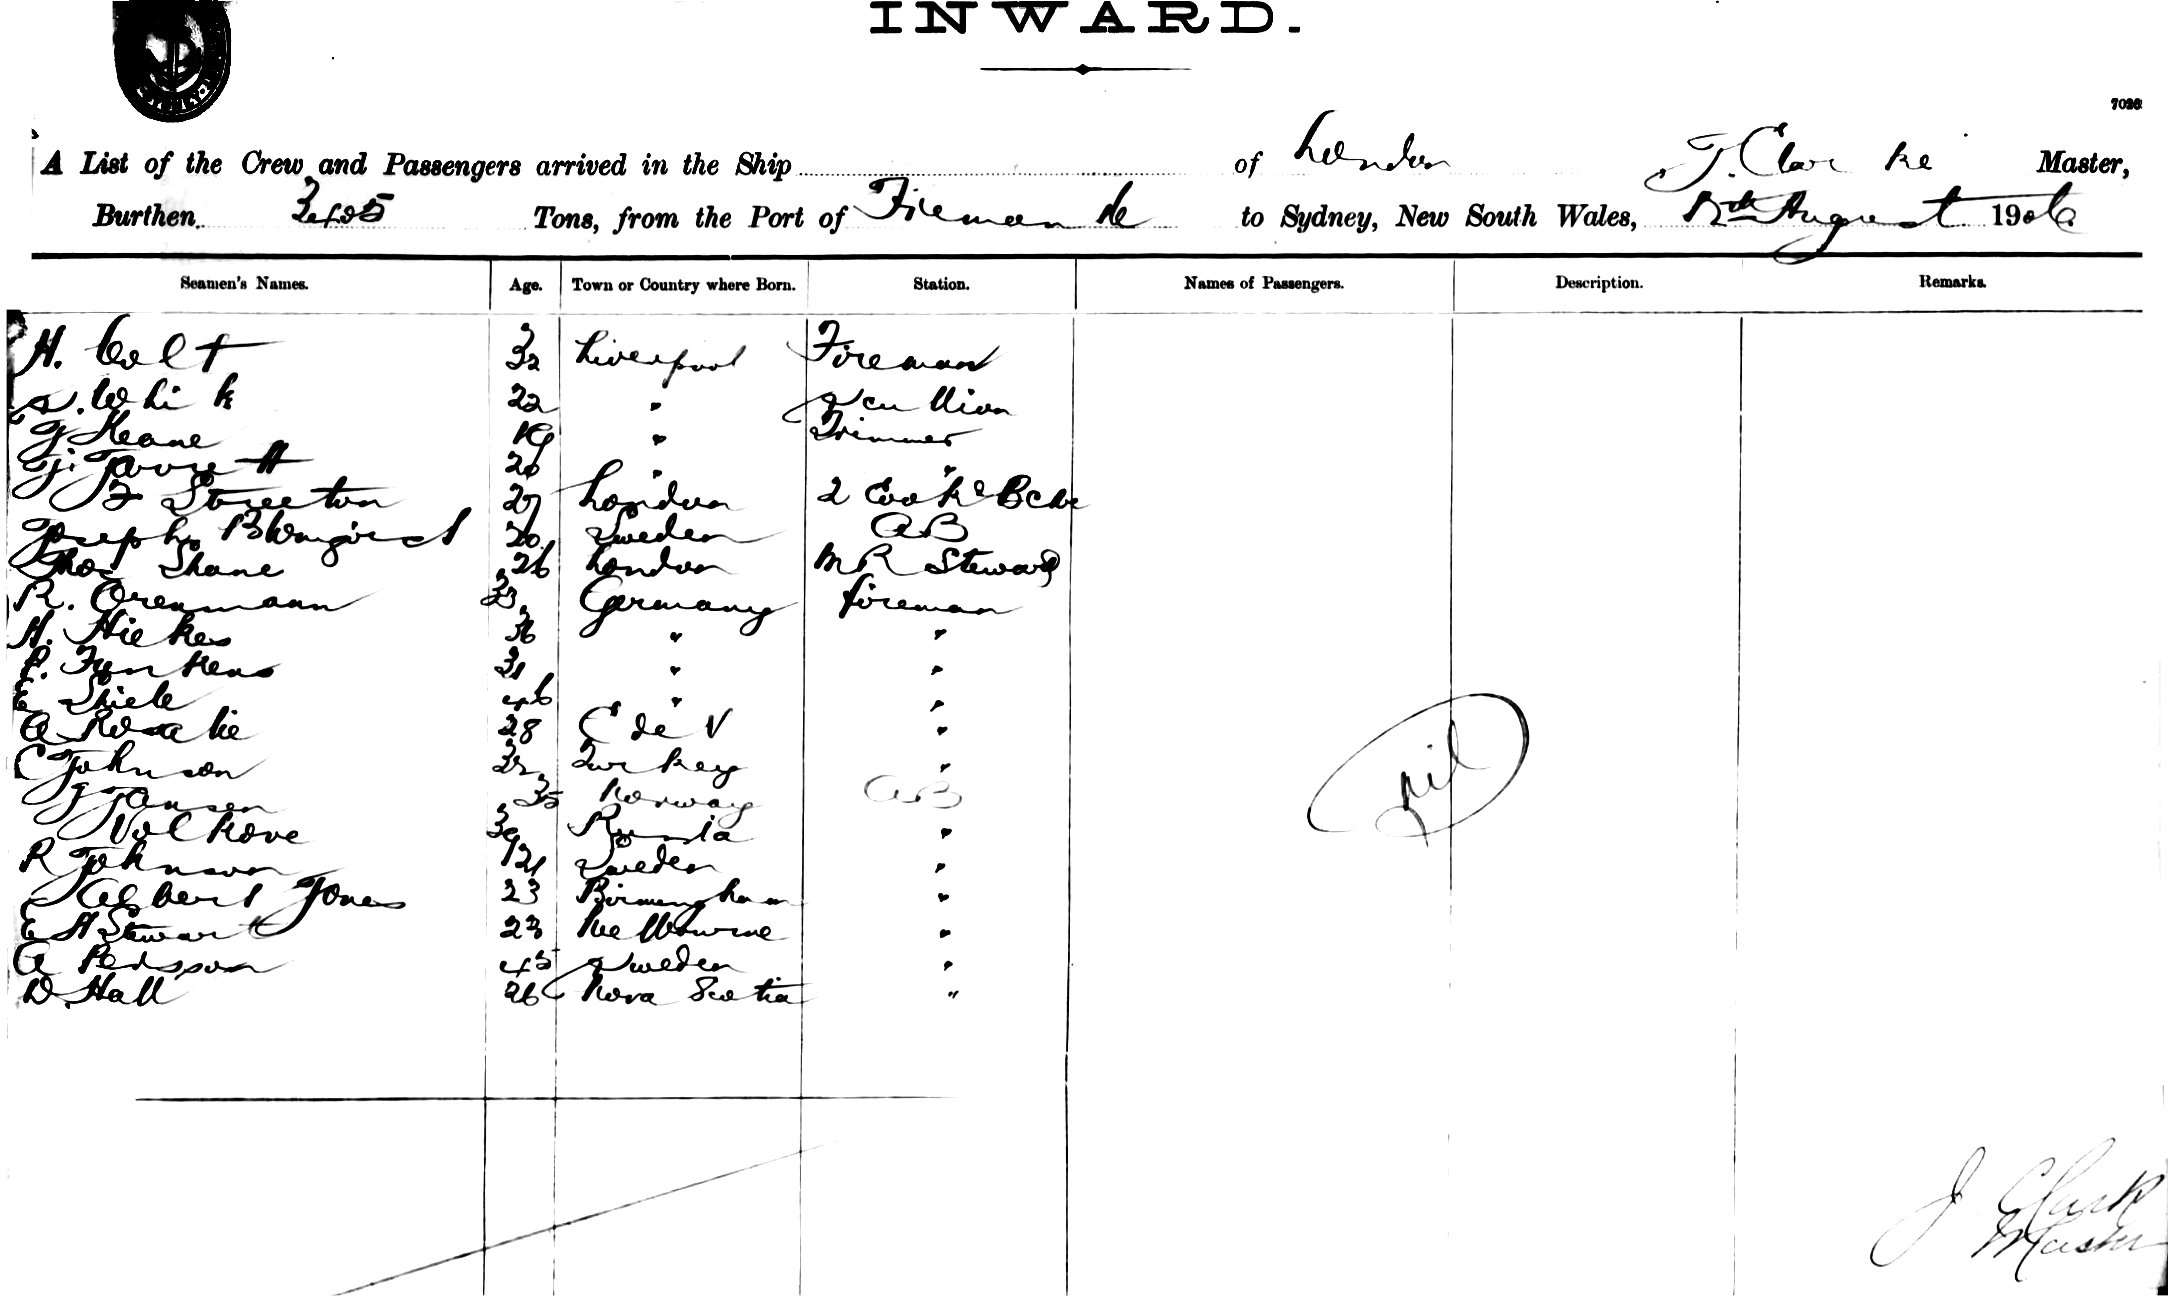 INWARD.
7026
A List of the Crew and Passengers arrived in the Ship of London J. Clarke Master,
Burthen 3405 Tons, from the Port of Fremantle to Sydney, New South Wales, 12th August 1906
Seamen's Names. Age. Town or Country where Born. Station. Names of Passengers. Description. Remarks.
H. Colt 32 Liverpool Fireman
S. White 22 " Scullion
J Keane 19 " Trimmer
J. 20 " "
F Streeton 27 London 2 Cook & Bcke
Joseph 20 Sweden AB
Thos Shane 26 London M R Steward
R. 33 Germany fireman
H. Hickes 36 " "
P. Funkens 31 " "
E 46 " "
A 28 C de V "
C Johnson 32 Turkey "
J Jansen 35 Norway AB
Volkove 39 Russia "
R Johnson 21 Sweden "
Albert Jones 23 Birmingham "
E H Stewart 23 Melbourne "
A Persson 45 Sweden "
D. Hall 26 Nova Scotia "
nil
J Clark
Master